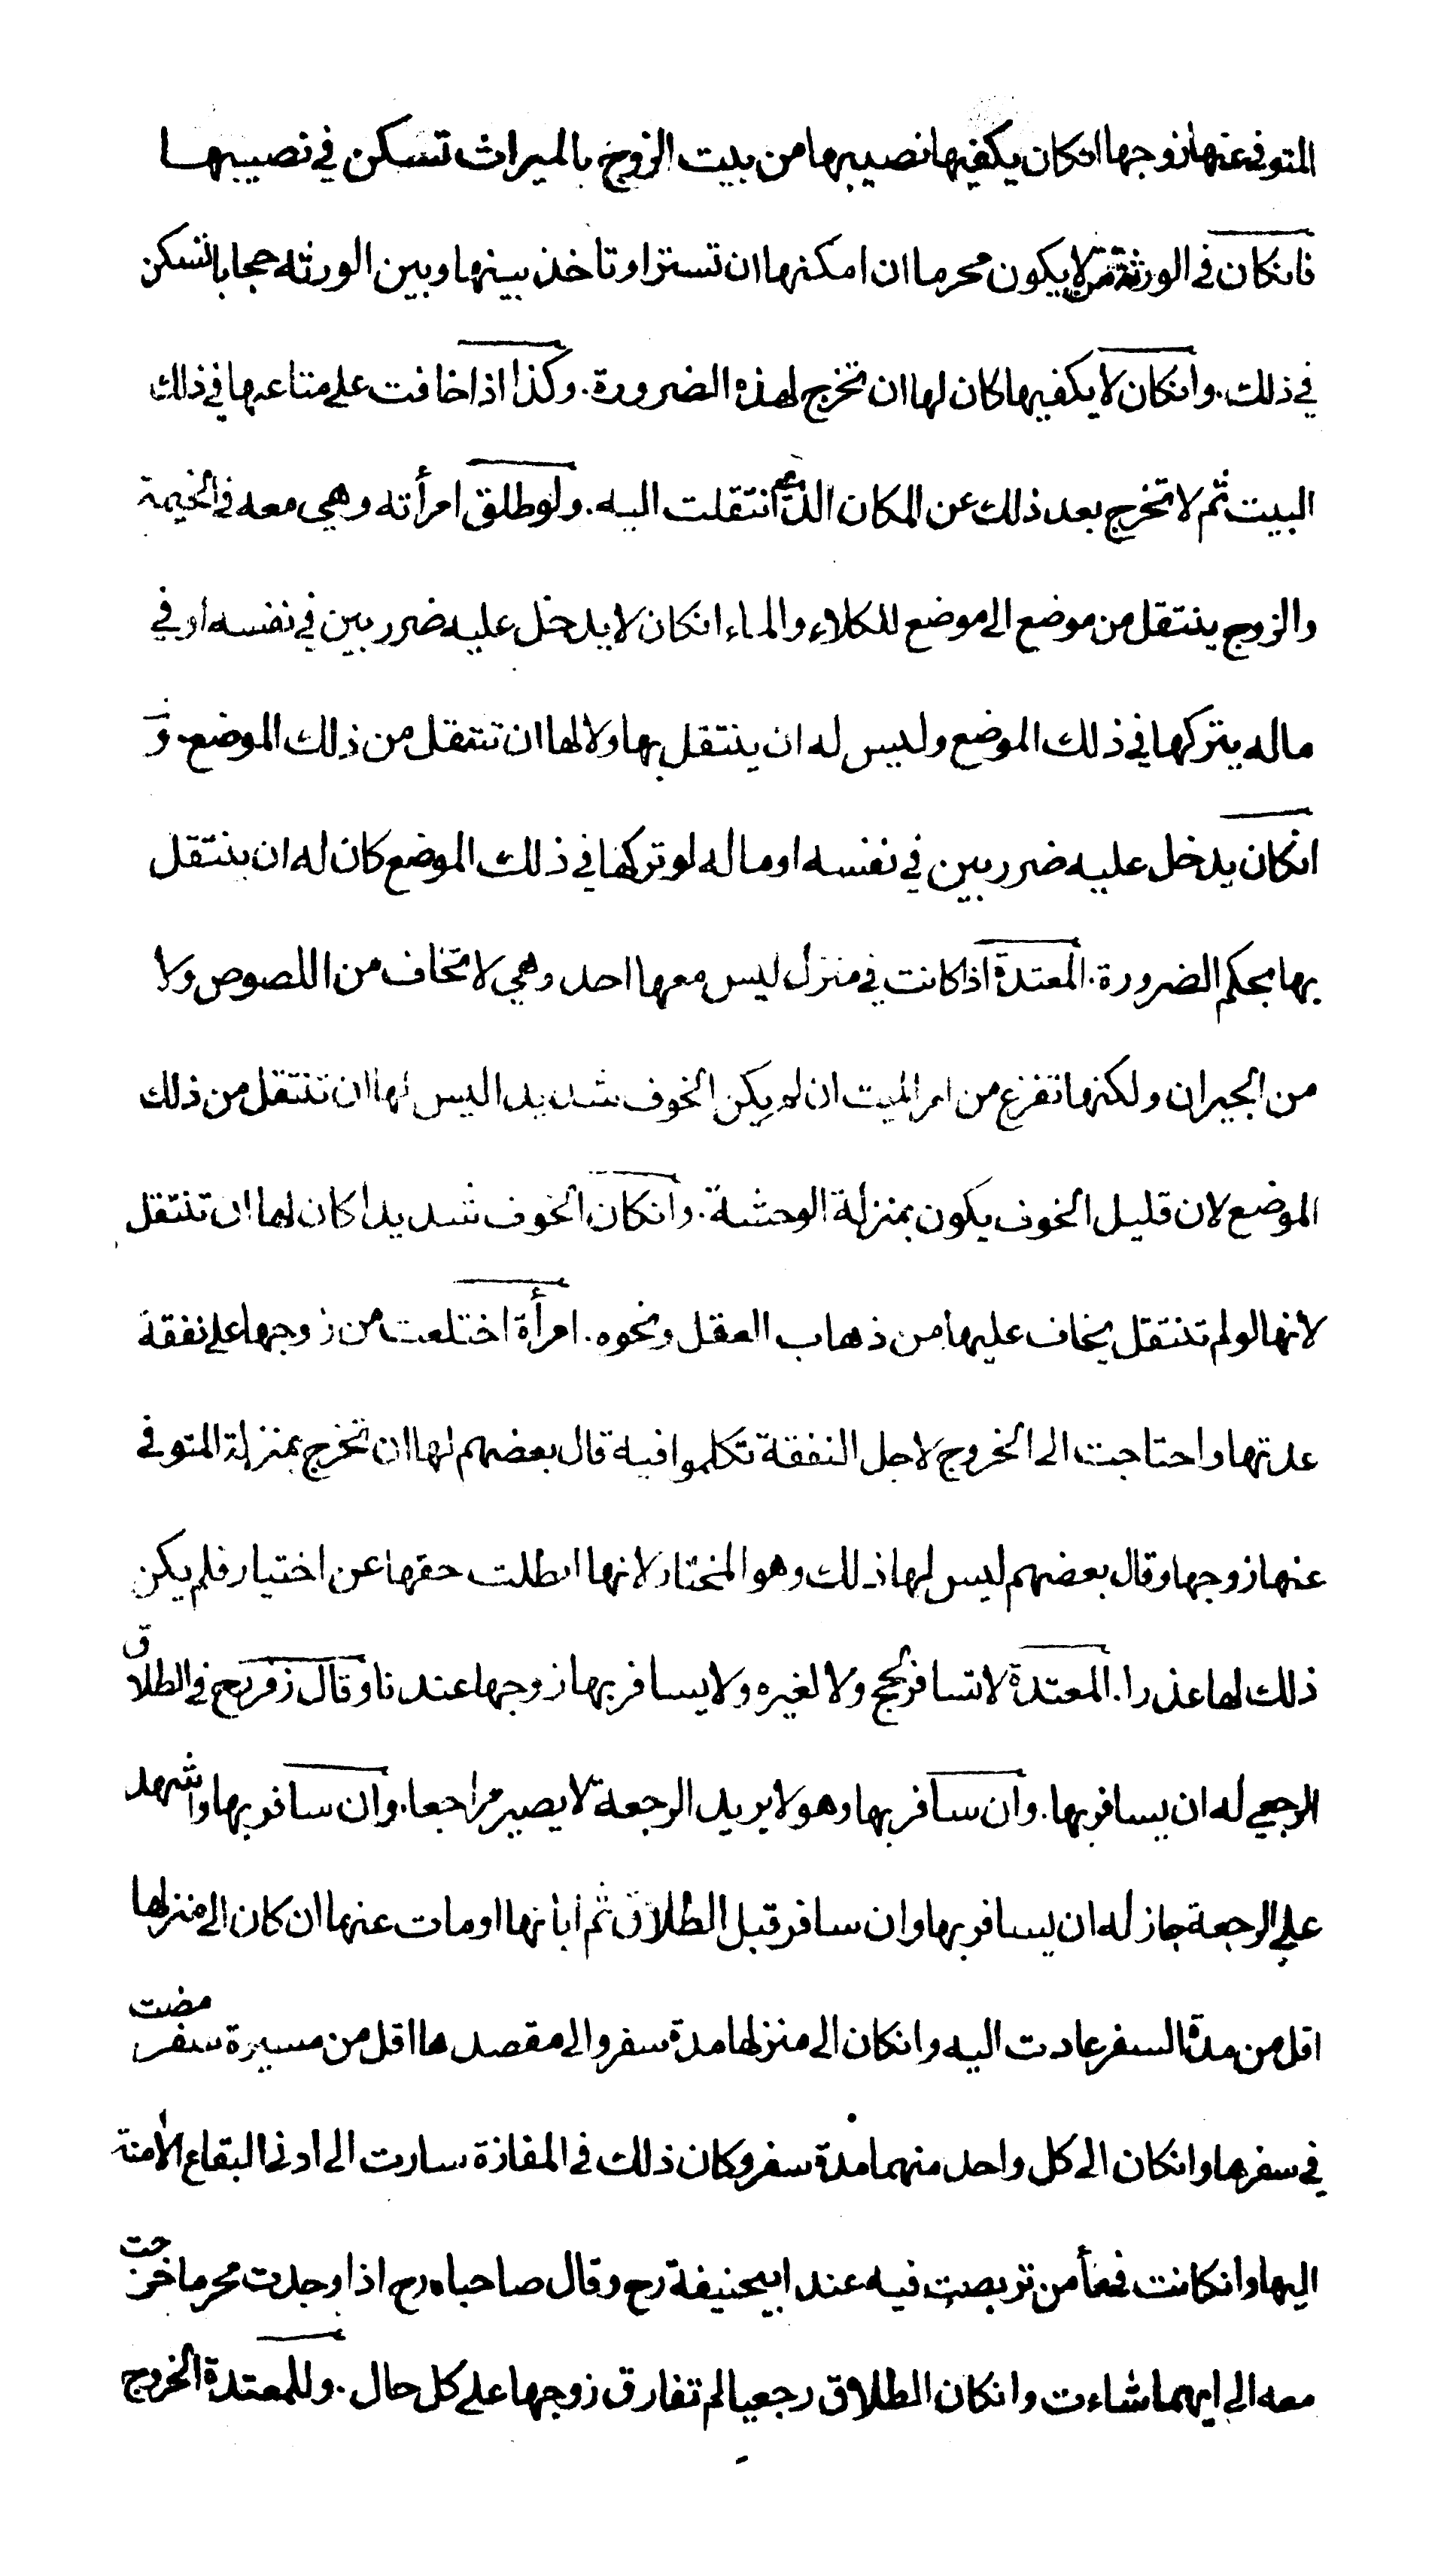 المتوفى عنها زوجها انكان يكفيها نصيبها من بيت الزوج بالميراث تسكن في نصيبها
فانكان في الورثة من لا يكون محرما ان امكنها ان تستتر او تأخذ بينها وبين الورثه حجابا تسكن
في ذلك . وانكان لا يكفيها كان لها ان تخرج لهذه الضرورة . وكذا اذا خافت على متاعها في ذلك
البيت ثم لا تخرج بعد ذلك عن المكان الذي انتقلت اليه . ولو طلق امرأته وهي معه في الخيمة
والزوج ينتقل من موضع الى موضع للكلاء والماء انكان لا يدخل عليه ضرر بين في نفسه او في
ماله يتركها في ذلك الموضع وليس له ان ينتقل بها ولا لها ان تنتقل من ذلك الموضع . و
انكان يدخل عليه ضرر بين في نفسه او ماله لو تركها في ذلك الموضع كان له ان ينتقل
بها بحكم الضرورة . المعتدة اذا كانت في منزل ليس معها احد وهي لا تخاف من اللصوص ولا
من الجيران ولكنها تفزع من امر الميت ان لم يكن الخوف شديدا ليس لها ان تنتقل من ذلك
الموضع لان قليل الخوف يكون بمنزلة الوحشة . وانكان الخوف شديدا كان لها ان تنتقل
لانها لو لم تنتقل يخاف عليها من ذهاب العقل ونحوه . امرأة اختلعت من زوجها على نفقة
عدتها واحتاجت الى الخروج لاجل النفقة تكلموا فيه قال بعضهم لها ان تخرج بمنزلة المتوفى
عنها زوجها وقال بعضهم ليس لها ذلك وهو المختار لانها ابطلت حقها عن اختيار فلم يكن
ذلك لها عذرا . المعتدة لا تسافر لحج ولا لغيره ولا يسافر بها زوجها عندنا وقال زفر رح في الطلاق
الرجعي له ان يسافر بها . وان سافر بها وهو لا يريد الرجعة لا يصير مراجعا . وان سافر بها واشهد
على الرجعة جاز له ان يسافر بها وان سافر قبل الطلاق ثم ابانها او مات عنها ان كان الى منزلها
اقل من مدة السفر عادت اليه وانكان الى منزلها مدة سفر والى مقصدها اقل من مسيرة سفر مضت
في سفرها وانكان الى كل واحد منهما مدة سفر وكان ذلك في المفازة سارت الى ادنى البقاع الآمنة
اليها وانكانت في مأمن تربصت فيه عند ابيحنيفة رح وقال صاحباه رح اذا وجدت محرما خرجت
معه الى ايهما شاءت وانكان الطلاق رجعيا لم تفارق زوجها على كل حال . وللمعتدة الخروج